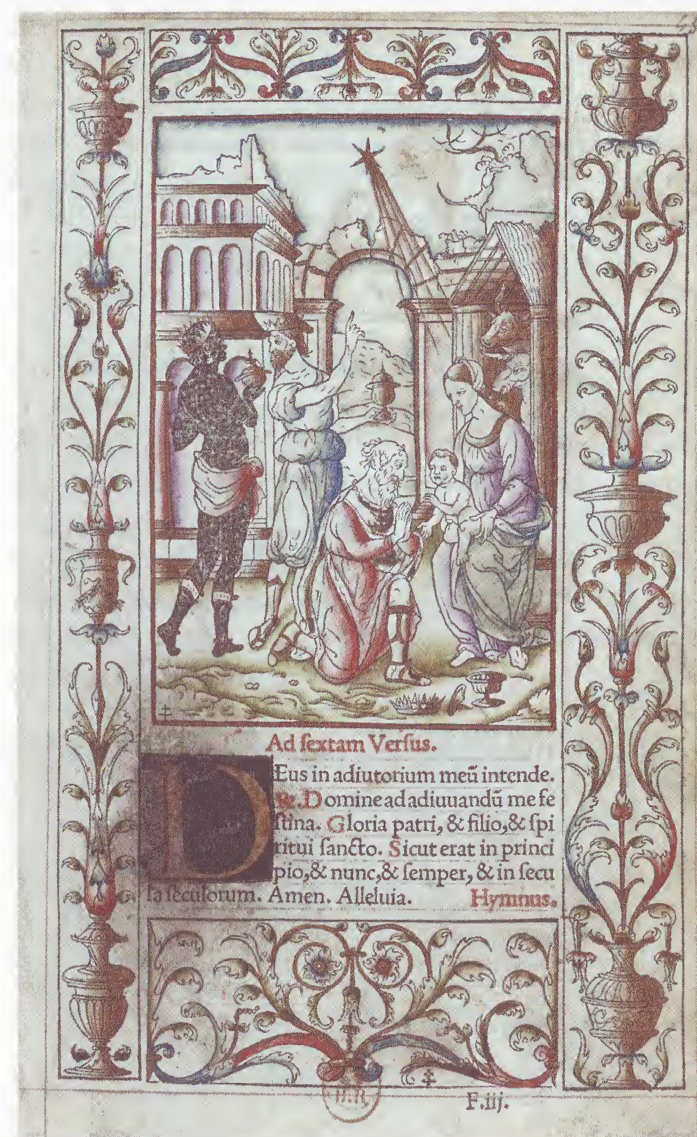 Ad ſextam Verſus.
DEus in adiutorium meū intende.
℟. Domine ad adiuuandū me fe
ſtina. Gloria patri, & filio, & ſpi
ritui ſancto. Sicut erat in princi
pio, & nunc, & ſemper, & in ſecu
la ſeculorum. Amen. Alleluia. Hymnus.
F.iij.